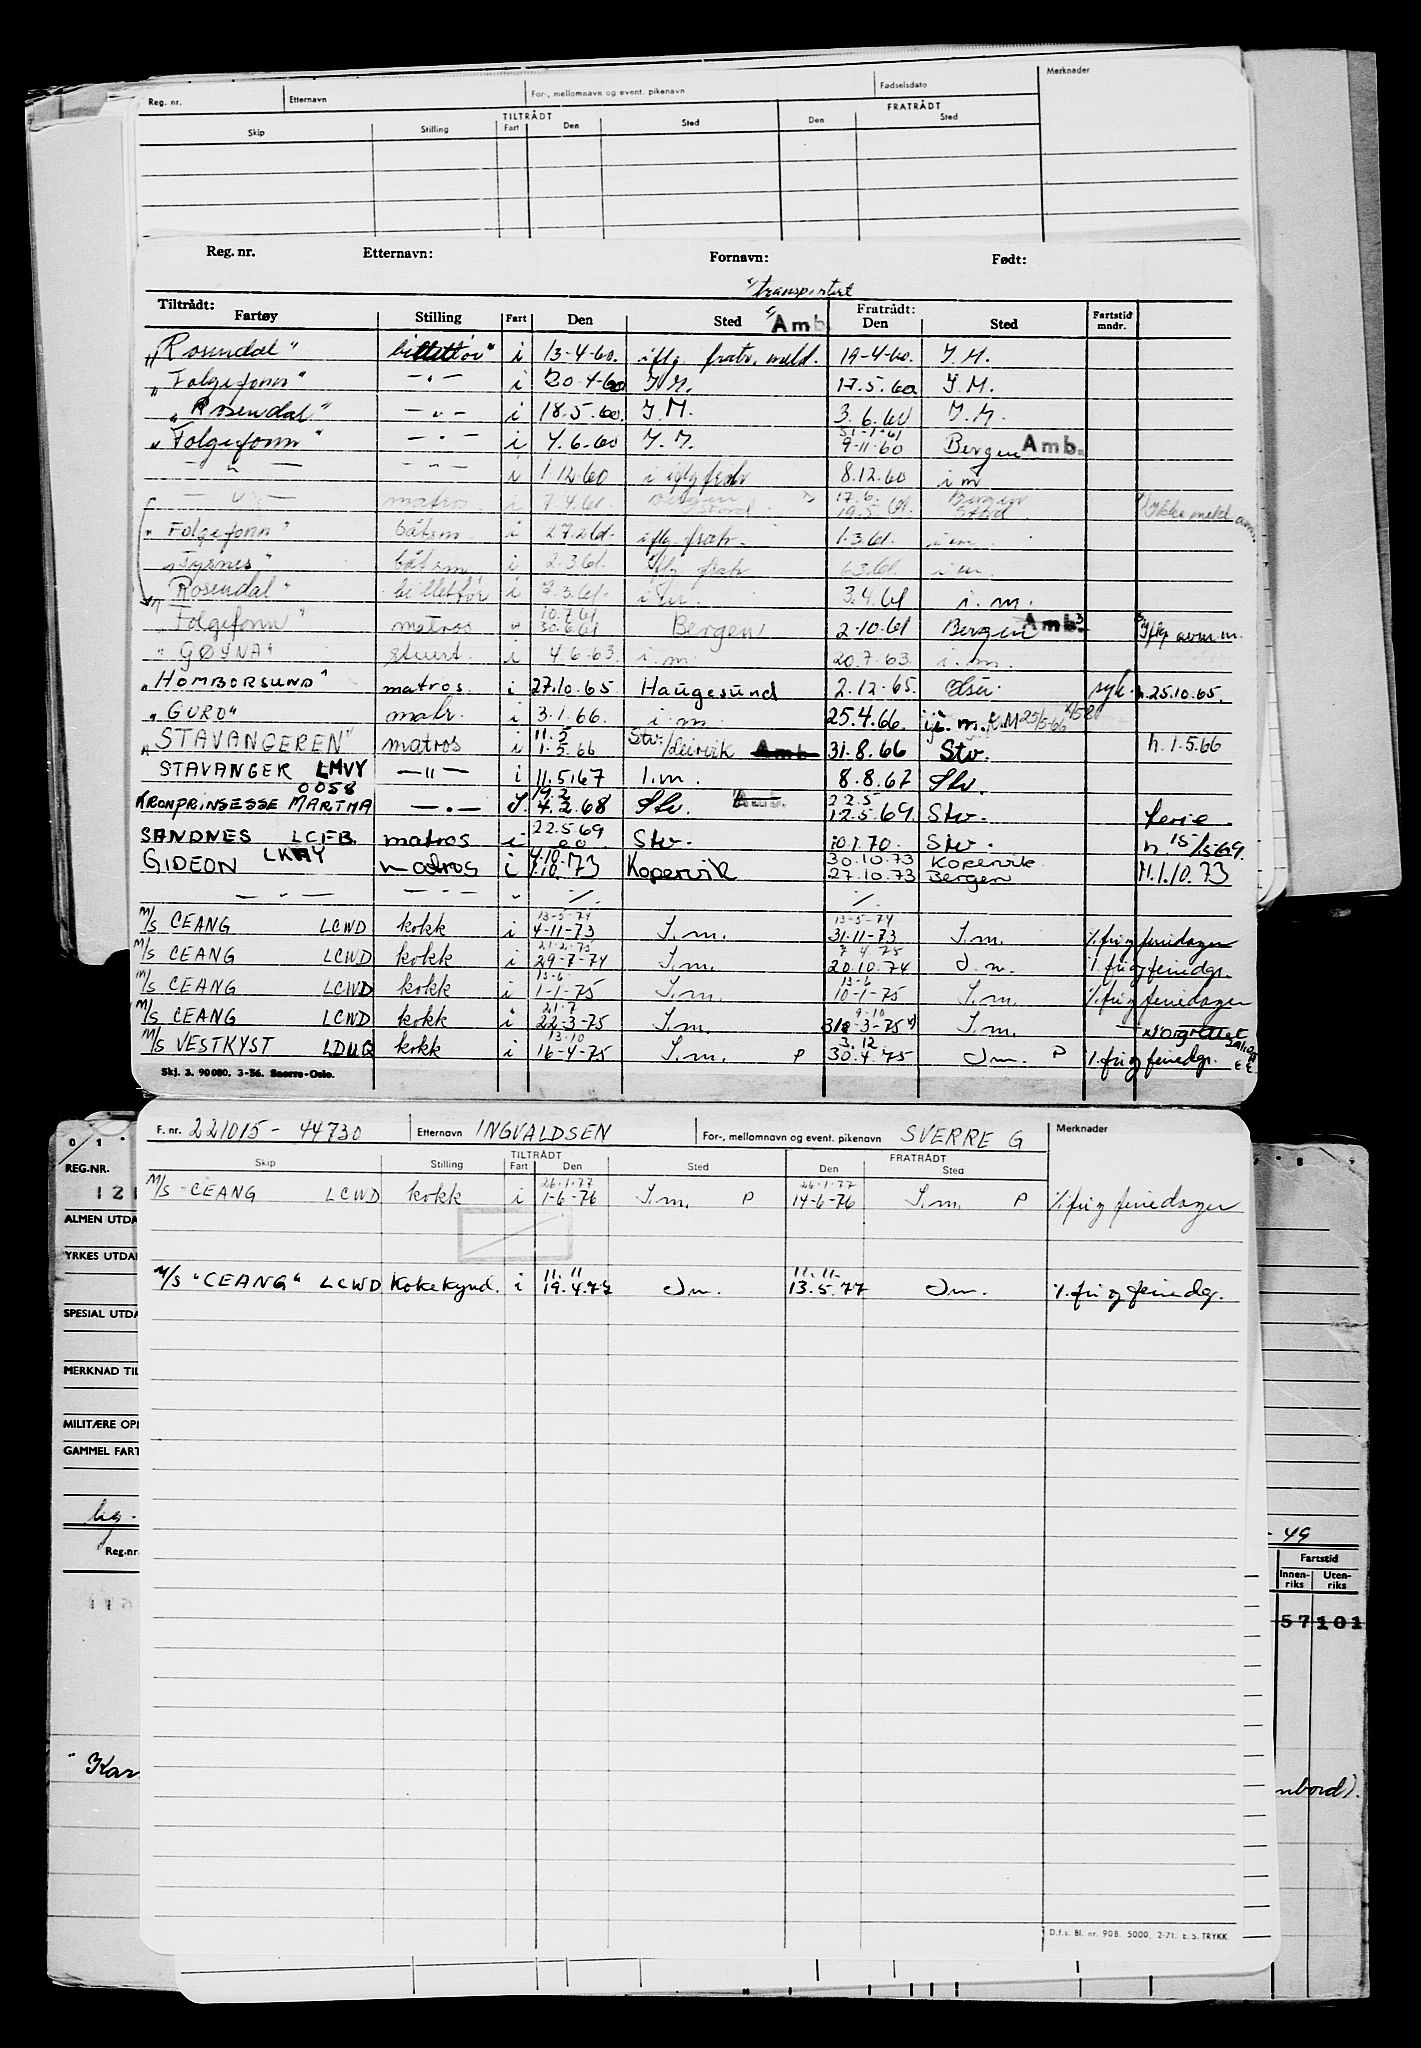 Reg. nr. Etternavn For-, mellomnavn og event. pikenavn Fødselsdato Merknader
TILTRÅDT FRATRÅDT
Skip Stilling Fart Den Sted Den Sted
Reg. nr. Etternavn: Fornavn: Født:
Tiltrådt: Fratrådt:
Fartøy Stilling Fart Den Sted Amb. Den Sted Fartstid mndr.
"Rosendal" i 13-4-60. iflg. fratr. meld. 19-4-60. I.M.
"Folgefonn" — " — i 20-4-60 I.M. 17.5.60 I.M.
"Rosendal" — " — i 18.5.60. I.M. 3.6.60 I.M.
"Folgefonn" — " — i 4.6.60 9-11-60 Bergen Amb.
— " — — " — i 1.12.60 i iflg fratr 8.12.60 i m
— " — matros i 7.4.61. Bergen Stord 17.6. 19.5.61. Bergen Stord
"Folgefonn" båtsm i iflg. fratr. 1.3.61. i m.
"Tysnes" båtsm i 2.3.61. iflg fratr i m.
"Rosendal" billettør i i m. 3.4.61 i. m.
"Folgefonn" matros " 10.7.61 30.6.61 Bergen 2.10.61 Bergen Amb.
"GØYNA" stuert i 4.6.63. i. m. 20.7.63. i. m.
"HOMBORSUND" matros. i 27.10.65 Haugesund 2.12.65. syk. h.25.10.65.
"GURO" matr. i 3.1.66. i. m. 25.4.66.
"STAVANGEREN" matros i 11.5 1.5.66 Stv. /Leirvik Amb 31.8.66 Stv. h.1.5.66
STAVANGER LMVY — " — i 11.5.67 I.m. 8.8.67 Stv.
0058
KRONPRINSESSE MARTHA — " — 19.2 4.2.68 Stv. Amb. 22.5 12.5.69. Stv. ferie.
SANDNES LCFB matros i 22.5 69 Stv. 10.1.70. Stv. h 15/5-69.
GIDEON LKAY matros i 4.10. 1.10.73 Kopervik 30.10.73 27.10.73 Kopervik Bergen H.1.10.73
— " — — " — " ./. ./.
M/S CEANG LCWD kokk i 13-5-74 4-11-73 I.m. 13-5-74 31-11-73 I.m. ./. fri og feriedager
M/S CEANG LCWD kokk i 21-2-75 29-7-74 I.m. 7 4.75 20.10.74 I.m. ./. fri og feriedgr.
M/S CEANG LCWD kokk i 13-6- 1-1-75 I.m. 13-6 10-1-75 I.m. ./. fri og feriedager
M/S CEANG LCWD kokk i 21.7 22-3-75 I.m. 9-10 31-3-75 I.m.
M/S VESTKYST LDUQ kokk i 13-10 16-4-75 I.m. P 3.12. 30.4.75 I.m. P ./. fri og feriedgr.
Skj. 3. 90080. 3-56. Snorre-Oslo.
F. nr. 221015-44730 Etternavn INGVALDSEN For-, mellomnavn og event. pikenavn SVERRE G Merknader
TILTRÅDT FRATRÅDT
Skip Stilling Fart Den Sted Den Sted
M/S CEANG LCWD kokk i 26-1-77 1-6-76 I.m. P 26-1-77 14-6-76 I.m. P ./. fri og feriedager
M/S "CEANG" LCWD Kokekynd. i 11.11 19.4.77 I m. 11.11. 13.5.77 I m. ./. fri og feriedgr.
D.f.s. Bl. nr. 90B. 5000. 2-71. E.S. TRYKK
REG.NR.
ALMEN UTDA
YRKES UTDA
SPESIAL UTDA
MERKNAD TIL
MILITÆRE OP
GAMMEL FART
- 49
Reg.nr. Fartstid
Innen-riks Uten-riks
57 101
Kar
nbord).